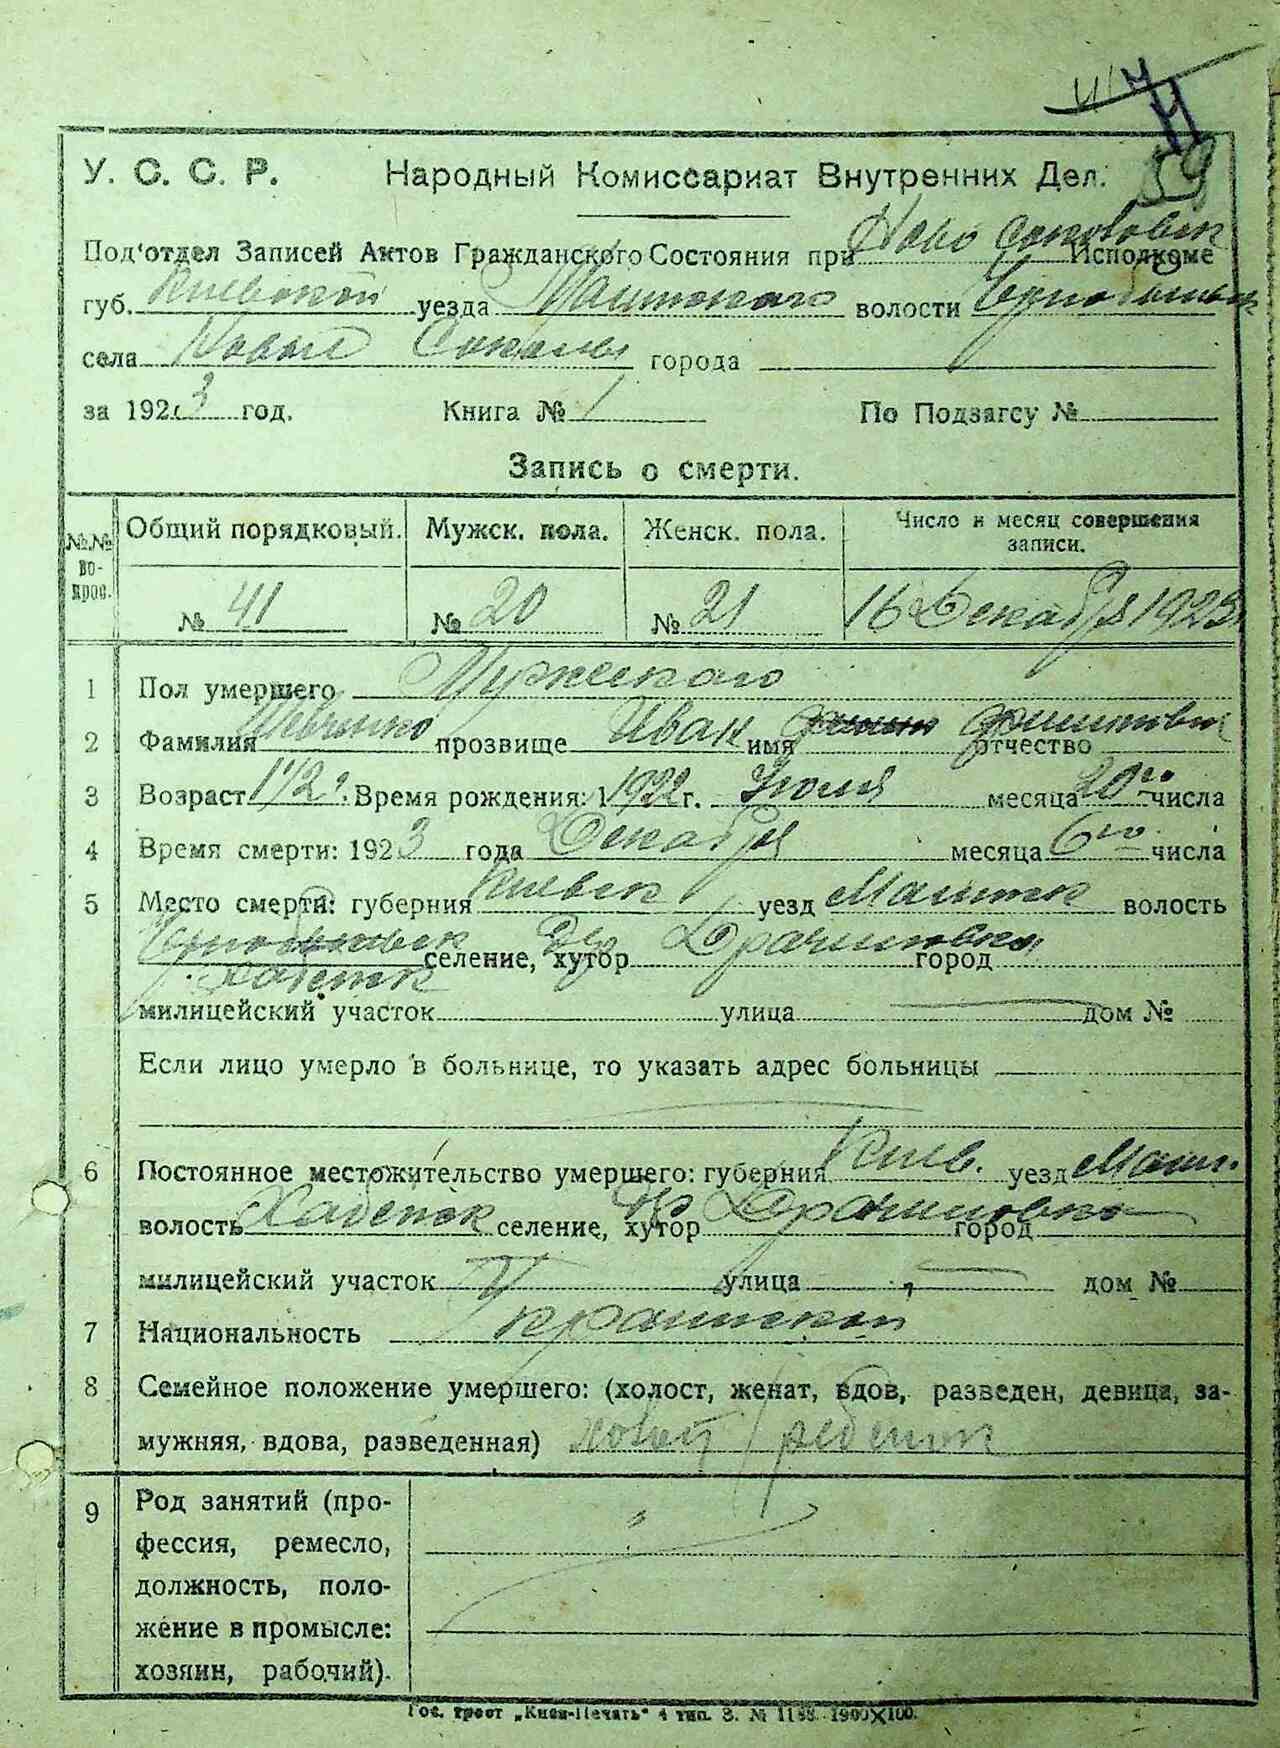 У. С. С. Р. Народный Комиссариат Внутренних Дел.
Под'отдел Записей Актов Гражданского Состояния при Ново Соколовск Исполкоме
губ. Киевской уезда волости
села Новый Соколы города
за 1923 год. Книга № 1 По Подзагсу №
Запись о смерти.
№№ вопрос. Общий порядковый. Мужск. пола. Женск. пола. Число и месяц совершения записи.
№ 41 № 20 № 21 16 Декабря 1923
1 Пол умершего Мужескаго
2 Фамилия прозвище Иван имя отчество
3 Возраст 1 1/2 г. Время рождения: 1922 г. Июля месяца 20го числа
4 Время смерти: 1923 года Декабря месяца 6го числа
5 Место смерти: губерния Киевск уезд волость
Хабенск селение, хутор город
милицейский участок улица дом №
Если лицо умерло в больнице, то указать адрес больницы
6 Постоянное местожительство умершего: губерния Киев. уезд
волость Хабенск селение, хутор город
милицейский участок улица дом №
7 Национальность
8 Семейное положение умершего: (холост, женат, вдов, разведен, девица, за-
мужняя, вдова, разведенная) ребенок
9 Род занятий (про-
фессия, ремесло,
должность, поло-
жение в промысле:
хозяин, рабочий).
Гос. трест „Киев-Печать" 4 тип. З. № 1188 1900X100.